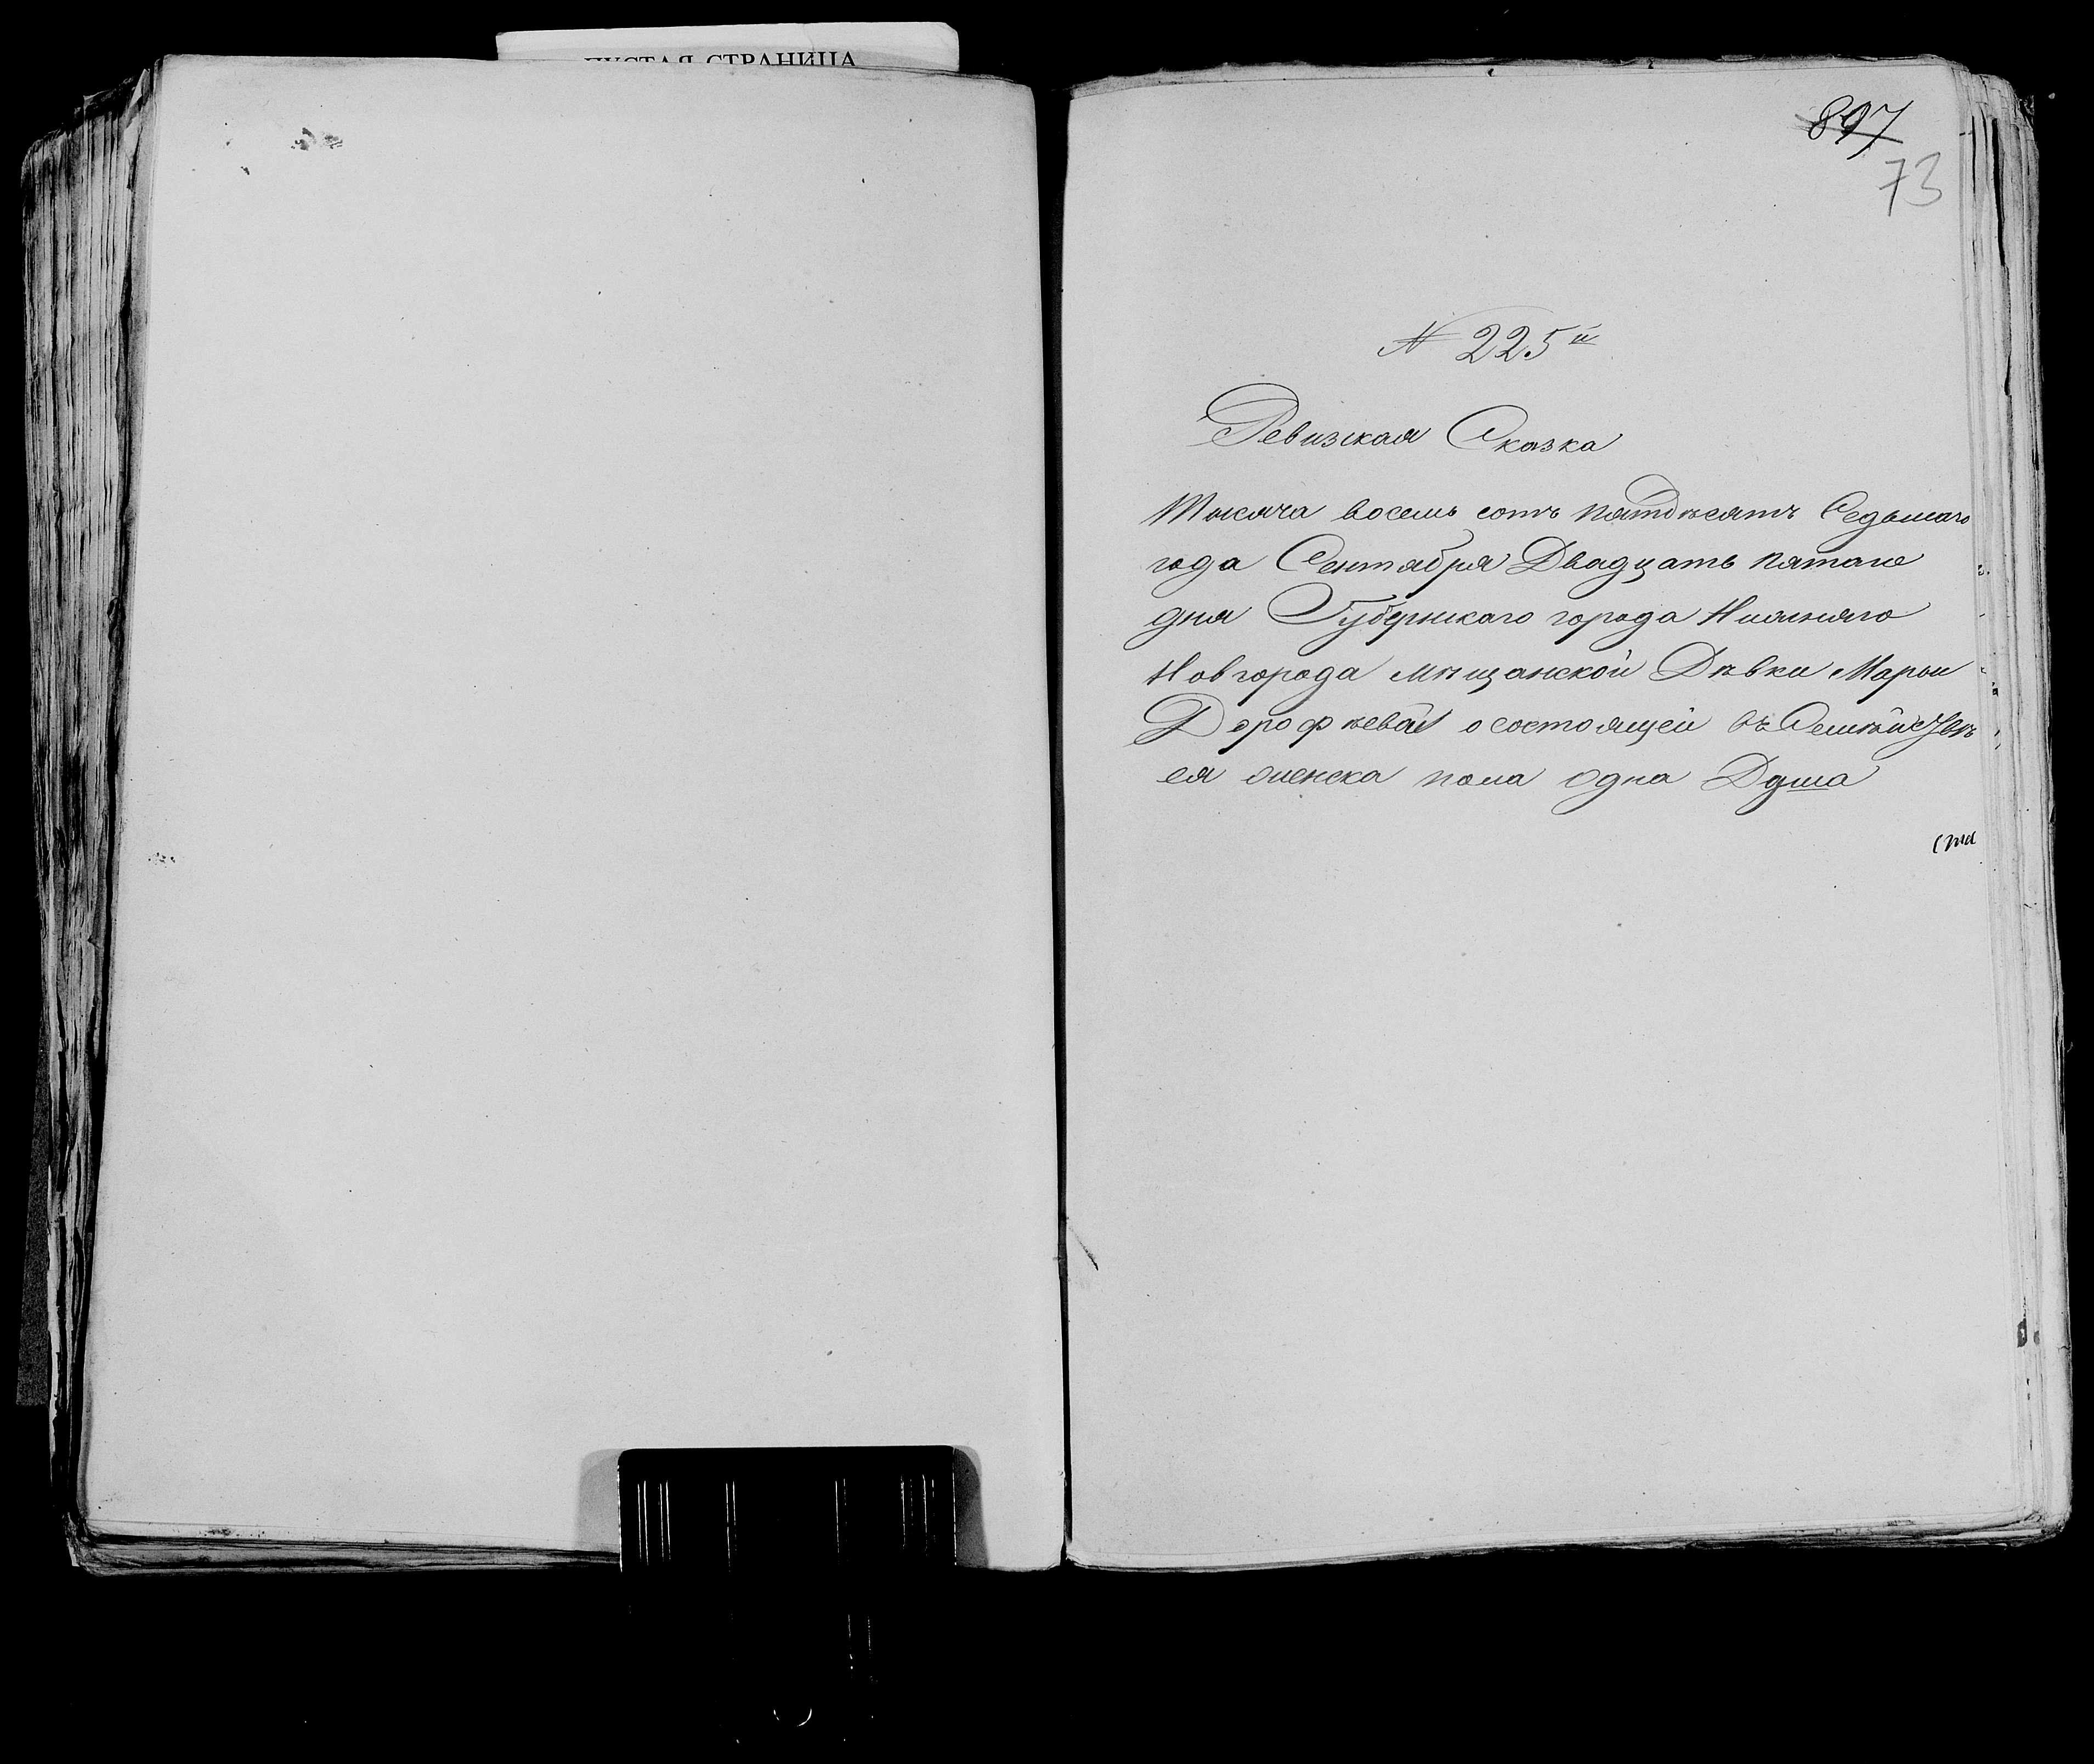 ПУСТАЯ СТРАНИЦА
897
73
N 225й
Ревизская Сказка
Тысяча восемь сотъ пятдѣсятъ Седьмаго
года Сентября Двадцать пятаго
дня Губернскаго города Нижняго
Новгорода мѣщанской Дѣвки Марьи
Дорофѣевой о состоящей въ Семѣйствѣ
ея женска пола одна Душа